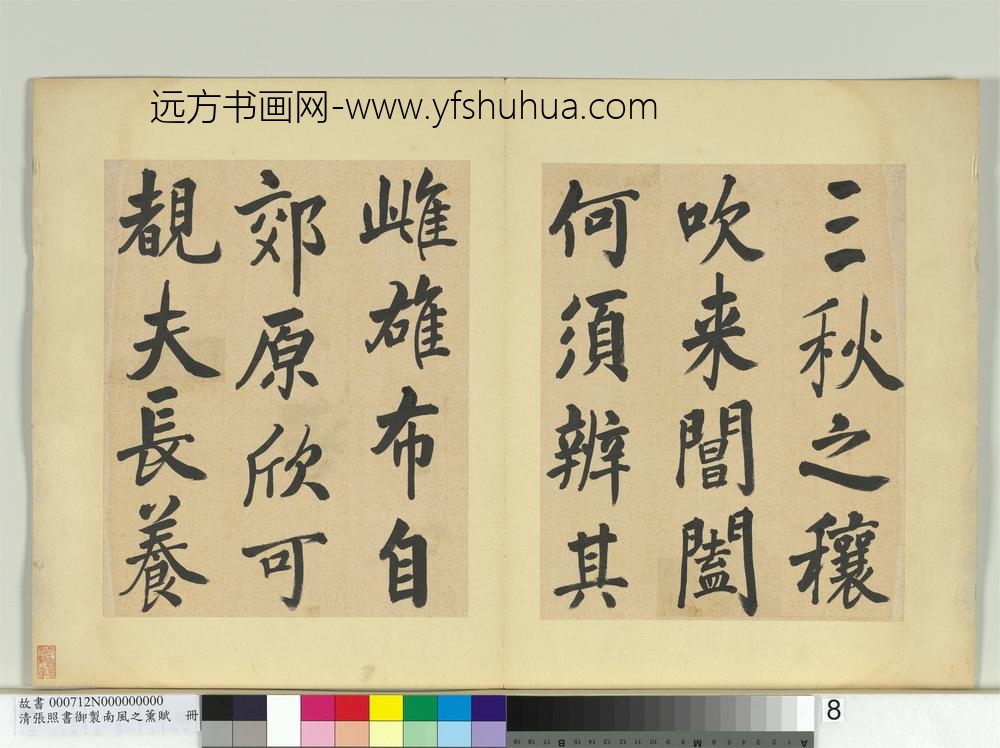 远方书画网-www.yfshuhua.com
三秋之穰
吹来閶闔
何須辨其
雌雄布自
郊原欣可
覩夫長養
故書 000712N000000000
清張照書御製南風之薰賦 冊
8
B
M
A